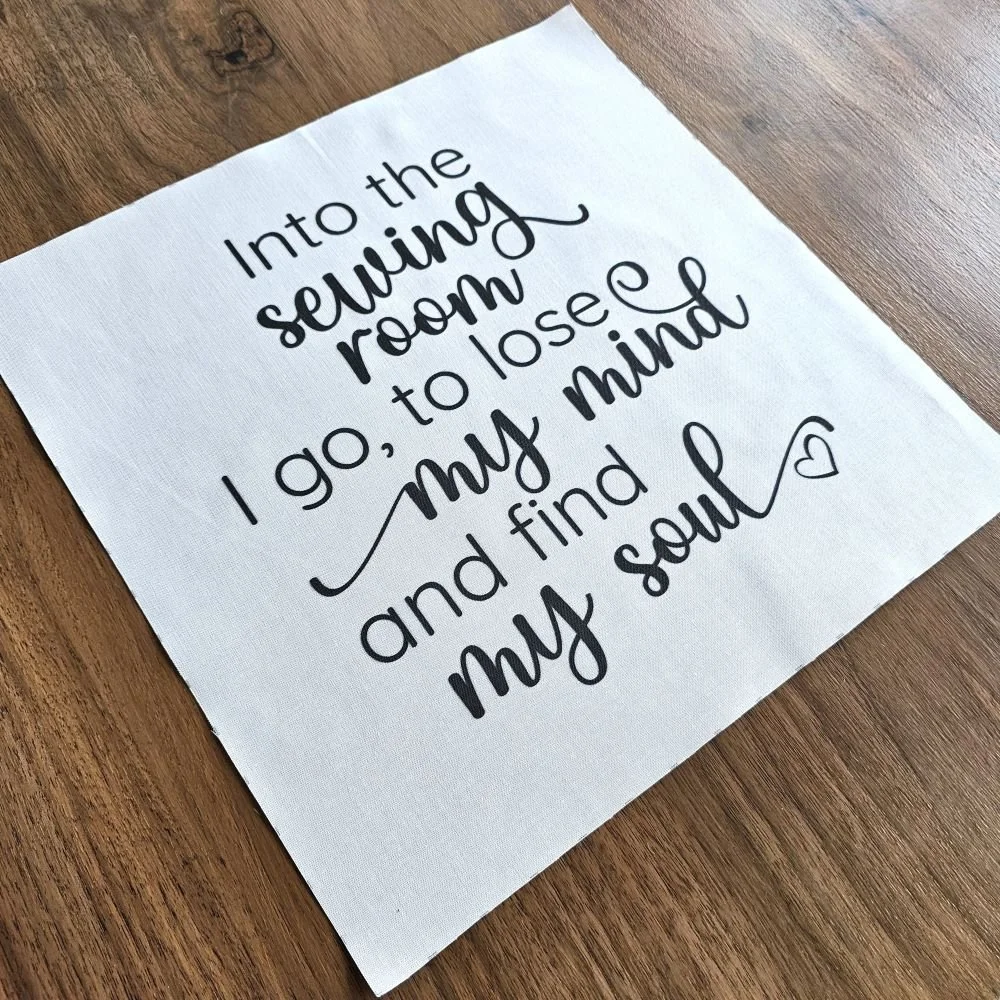 Into the
sewing
room
I go, to lose
my mind
and find
my soul